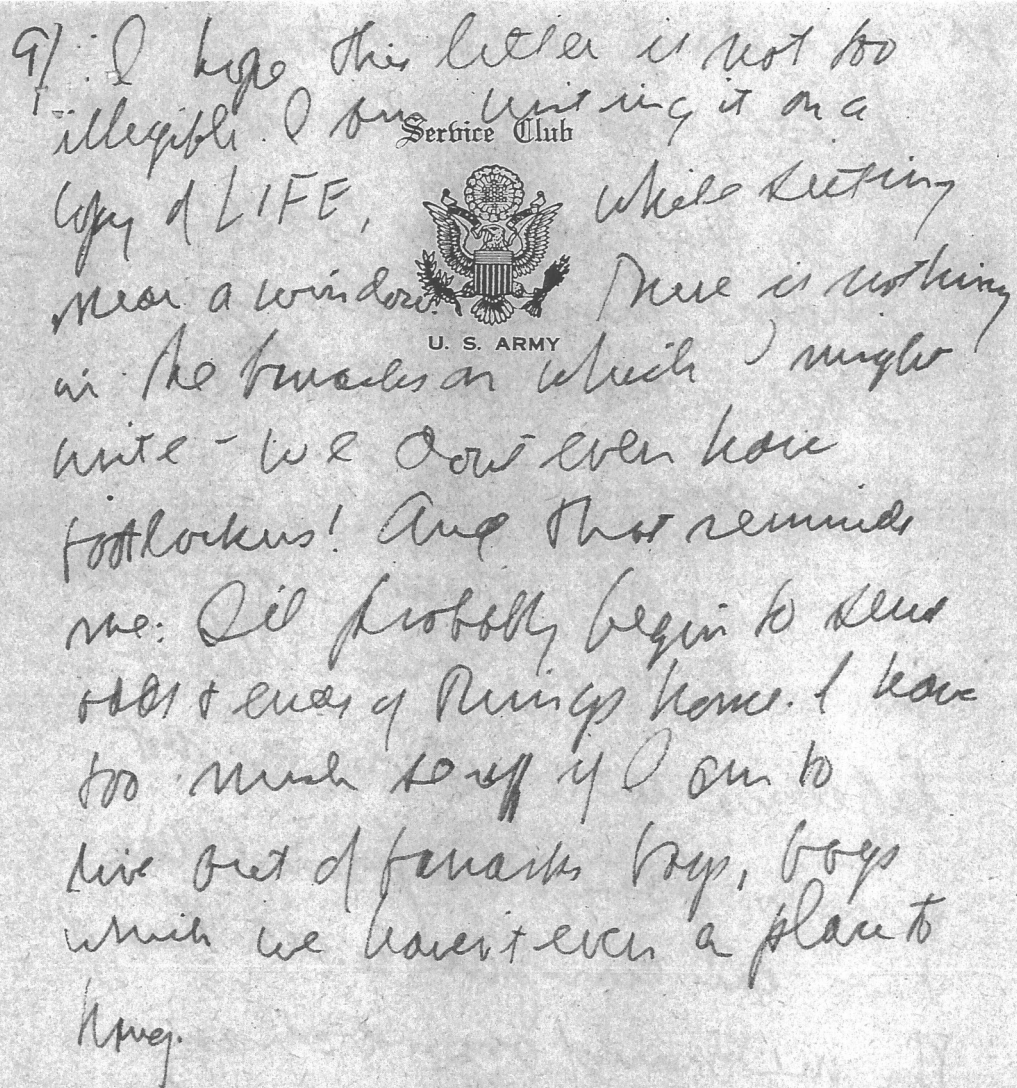 9) I hope this letter is not too
illegible. I am writing it on a
Service Club
copy of LIFE, while sitting
near a window. There is nothing
U. S. ARMY
in the barracks on which I might
write - we don't even have
footlockers! And that reminds
me: I'll probably begin to send
odds & ends of things home. I have
too much stuff if I am to
live out of barracks bags, bags
which we haven't even a place to
hang.